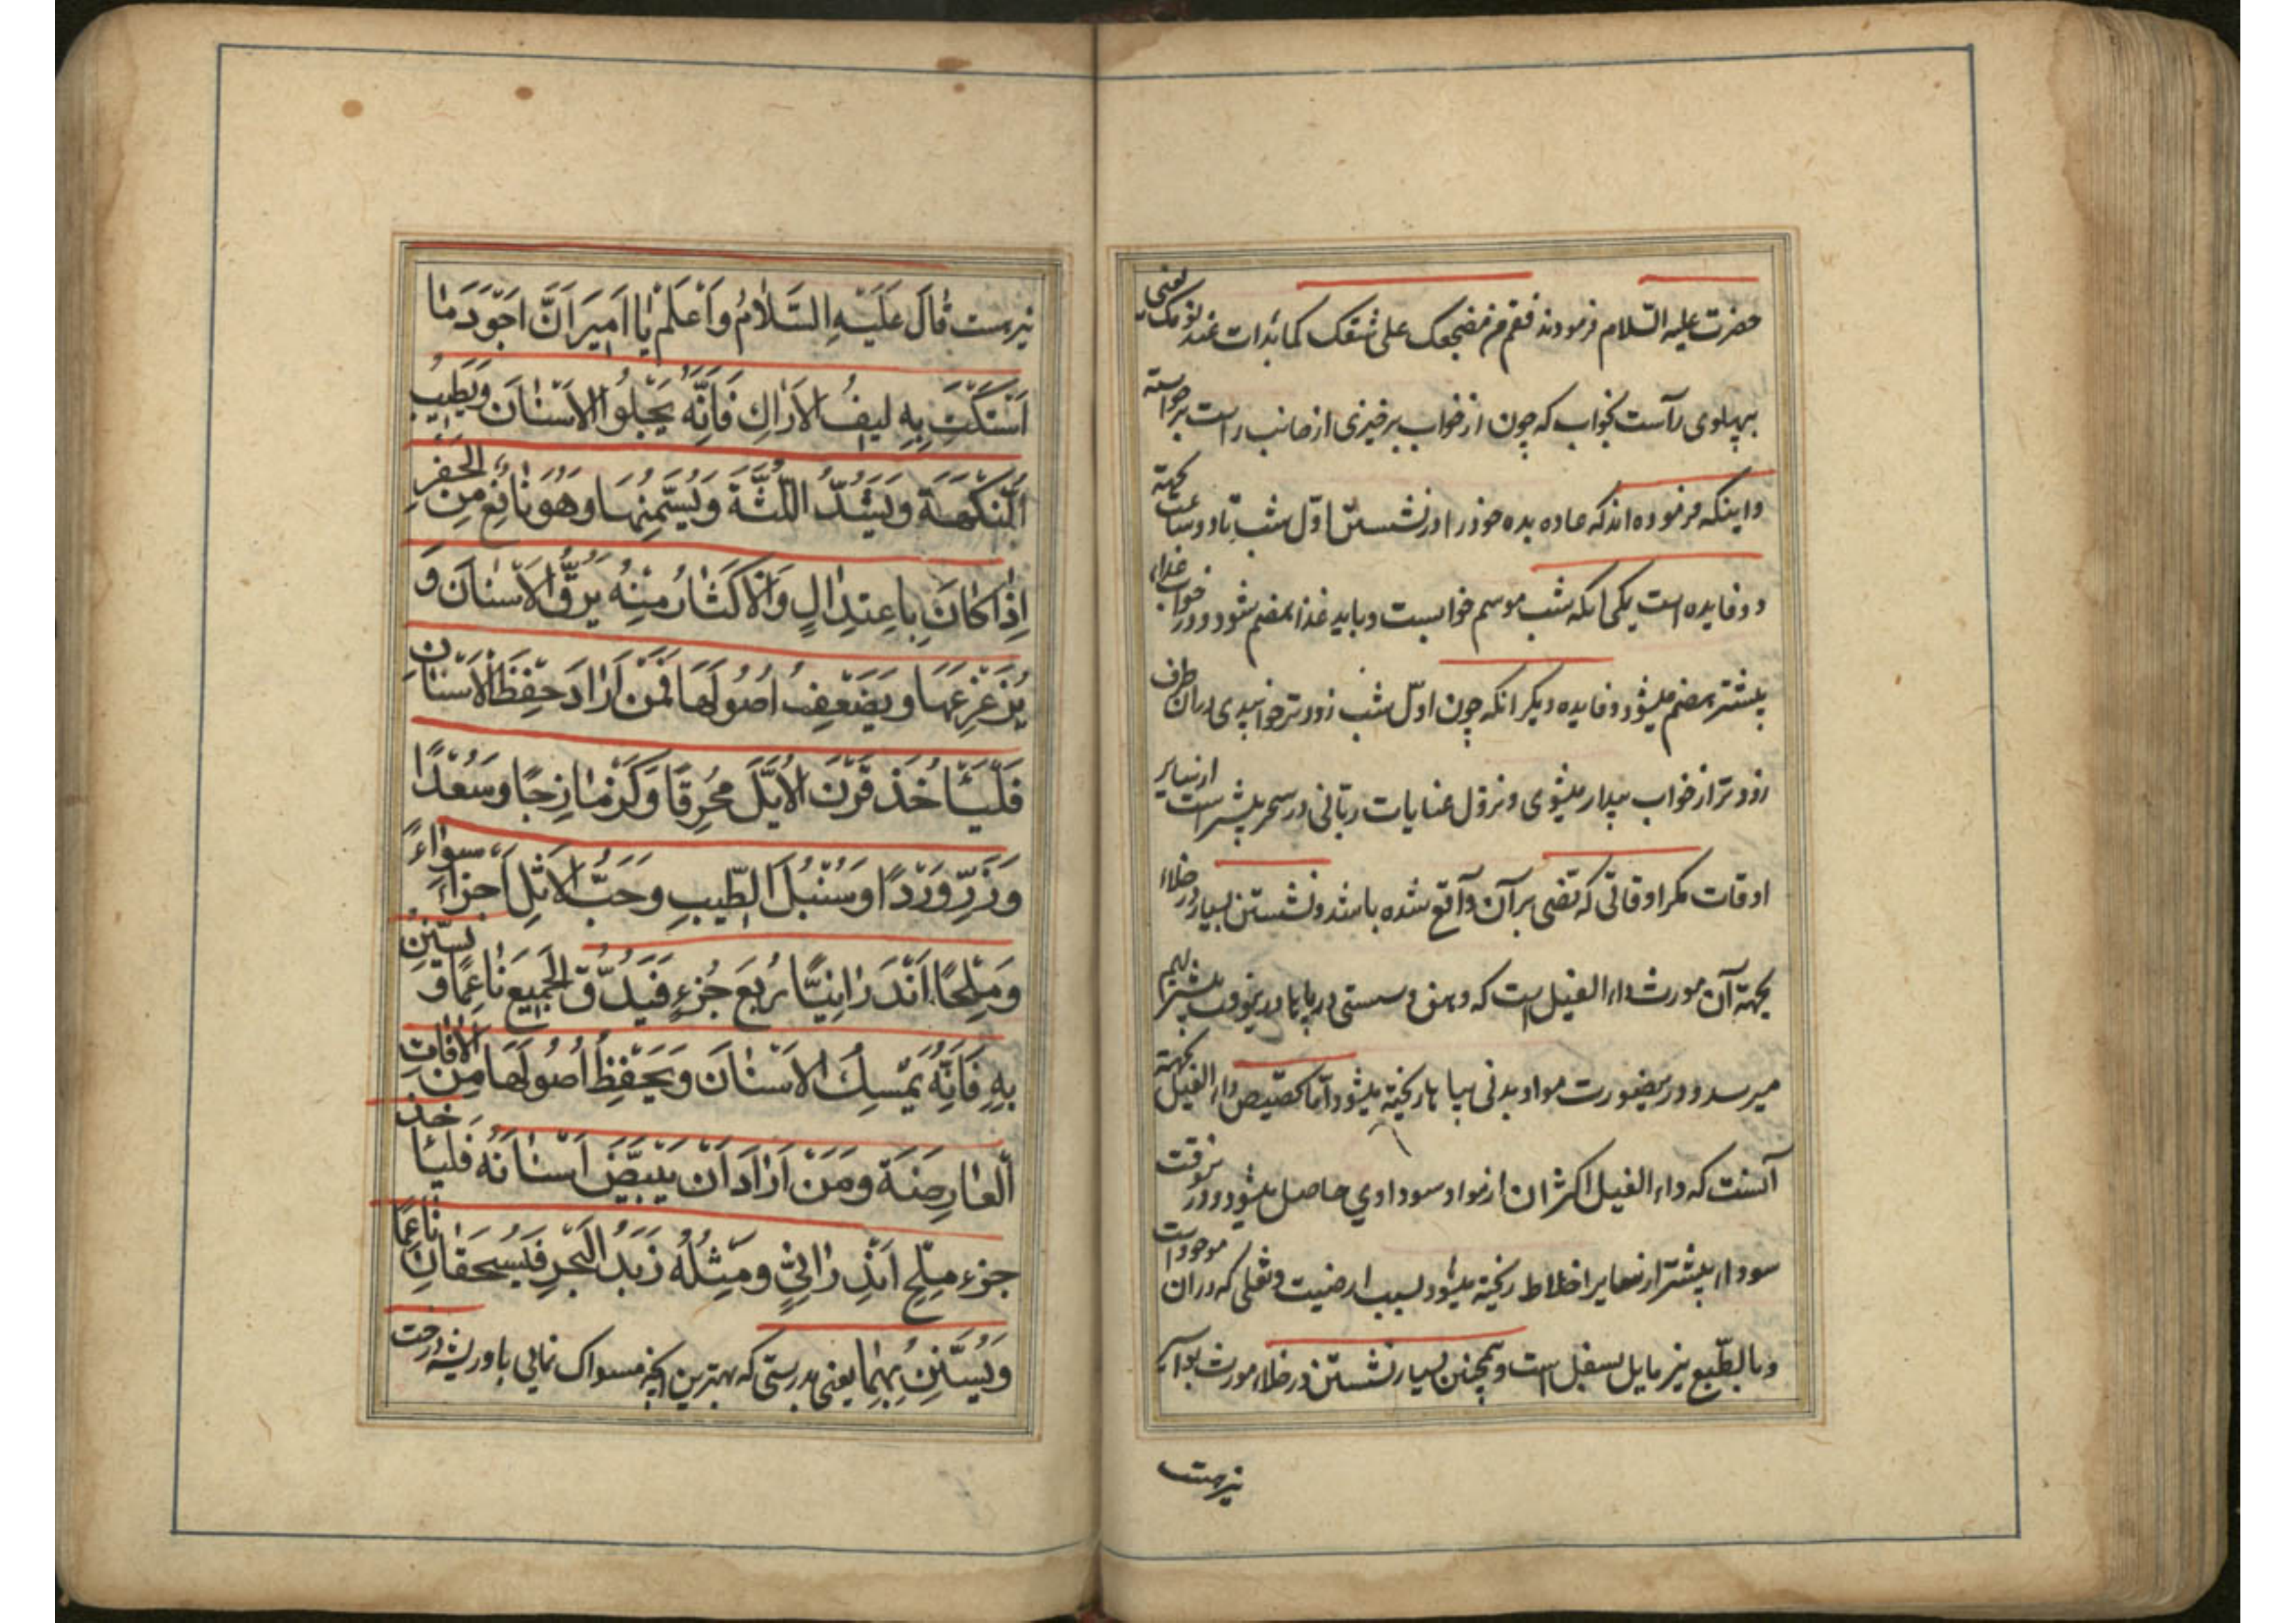 حضرت علیه السّلام فرمودند فقم من مضجعک علی شقک کما بدات عند نومک یعنی
بپهلوی راست بخواب که چون از خواب برخیزی از جانب راست برخواسته
و اینکه فرموده اند که عاده بده خود را در نشستن اوّل شب تا دو ساعت بجهة
دو فایده است یکی انکه شب موسم خوابست و باید غذا هضم شود و در خواب غذاء
بیشتر هضم میشود و فایده دیکر انکه چون اوّل شب زودتر خوابیدی از ان طرف
زودتر از خواب بیدار میشوی و نزول عنایات ربّانی در سحر بیشتر است از سایر
اوقات مکر اوقاتی که نصّی بر آن واقع شده باشد و نشستن بسیار در خلاء
بجهة آن مورث داء الفیل است که وهن و سستی در پایها در ینوقت بیشتر بهم
میرسد و در ینصورت مواد بدنی بپاها ریخته میشود و امّا تخصیص داء الفیل بجهة
آنست که داء الفیل اکثر ان از مواد سوداوی حاصل میشود و در ینوقت
سوداء بیشتر از سایر اخلاط ریخته میشود بسبب ارضیت و ثقلی که در ان موجود است
و بالطّبع نیز مایل بسفل است و همچنین بسیار نشستن در خلاء مورث بواسیر
نیز هست
نیز هست قَالَ عَلَيْهِ السَّلَامُ وَ اَعْلَمْ يَا اَمِيرَ اَنَّ اَجْوَدَ مَا
اَسْتَكْتَ بِهِ لِيفُ الاَرَاكِ فَاِنَّهُ يَجْلُوا الاَسْنَانَ وَيُطَيِّبُ
اَلنَّكْهَةَ وَيَشُدُّ اللِّثَةَ وَيُسَمِّنُهَا وَهُوَ نَافِعٌ مِنَ الْحَفْرِ
اِذَا كَانَ بِاعْتِدَالٍ وَالاَكْثَارُ مِنْهُ يَرُقُّ الاَسْنَانَ وَ
يُزَعْزِعُهَا وَ يُضْعِفُ اُصُولَهَا فَمَنْ اَرَادَ حِفْظَ الاَسْنَانِ
فَلْيَأْخُذْ قَرْنَ الاُيَّلِ مُحْرَقًا وَ كَزْمَازِجًا وَ سُعْدًا
وَ زَرِّ وَرْدًا وَ سُنْبُلَ الطِّيبِ وَ حَبَّ الاَثْلِ اَجْزَاءً سَوَاءً
وَ مِلْحًا اَنْدَرَانِيًّا رُبْعَ جُزْءٍ فَيُدَقُّ الْجَمِيعَ نَاعِمًا وَ يُسْتَنُّ
بِهِ فَاِنَّهُ يُمْسِكُ الاَسْنَانَ وَ يَحْفَظُ اُصُولَهَا مِنَ الآفَاتِ
اَلْعَارِضَةِ وَ مَنْ اَرَادَ اَنْ يُبَيِّضَ اَسْنَانَهُ فَلْيَاخُذ
جزء مِلْحٍ اَنْدَرَانِيٍّ وَ مِثْلَهُ زَبَدُ الْبَحْرِ فَيُسْحَقَانِ نَاعِمًا
وَ يُسْتَنُّ بِهِمَا یعنی بدرستی که بهترین انچه مسواک نمایی باو ریشه درخت